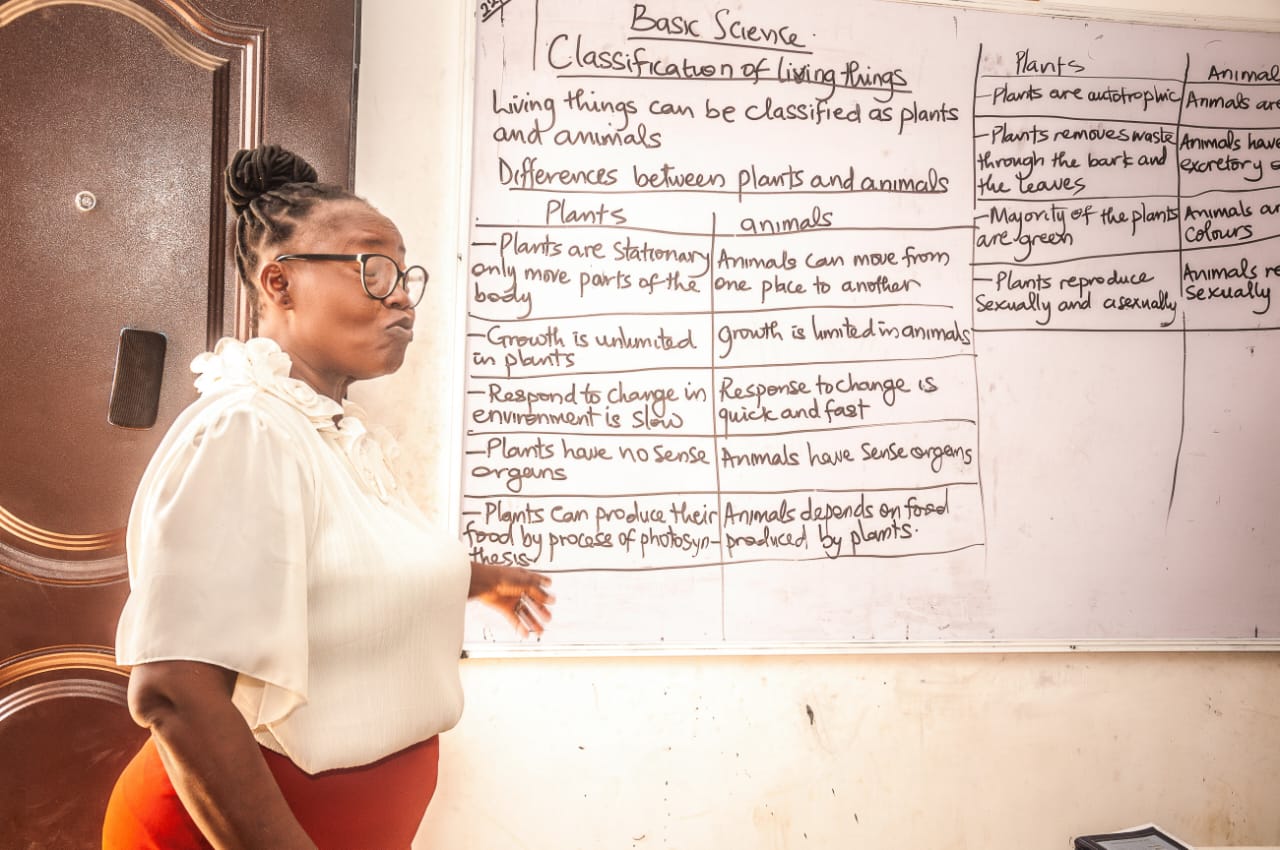 Basic Science.
Classification of living things
Living things can be classified as plants
and animals
Differences between plants and animals
Plants
animals
– Plants are Stationary
only move parts of the
body
Animals can move from
one place to another
– Growth is unlimited
in plants
growth is limited in animals
– Respond to change in
environment is slow
Response to change is
quick and fast
– Plants have no sense
organs
Animals have sense organs
– Plants can produce their
food by process of photosyn-
thesis
Animals depends on food
produced by plants.
Plants
Animal
– Plants are autotrophic
Animals are
– Plants removes waste
through the bark and
the leaves
Animals have
excretory
– Majority of the plants
are green
Animals
colours
– Plants reproduce
sexually and asexually
Animals
sexually